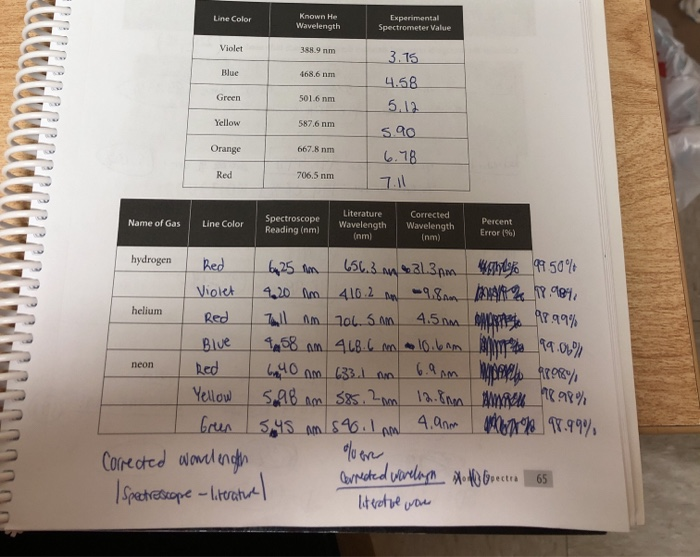 Line Color Known He Wavelength Experimental Spectrometer Value
Violet 388.9 nm 3.75
Blue 468.6 nm 4.58
Green 501.6 nm 5.12
Yellow 587.6 nm 5.90
Orange 667.8 nm 6.78
Red 706.5 nm 7.11
Name of Gas Line Color Spectroscope Reading (nm) Literature Wavelength (nm) Corrected Wavelength (nm) Percent Error (%)
hydrogen Red 6.25 nm 656.3 nm 31.3nm 99.50%
Violet 4.20 nm 410.2 nm 9.8nm 98.98%
helium Red 7.11 nm 706.5 nm 4.5nm 98.99%
Blue 4.58 nm 468.6 nm 10.6nm 99.06%
neon Red 6.40 nm 633.1 nm 6.9 nm 98.98%
Yellow 5.98 nm 585.2nm 12.8nm 98.98%
Green 5.45 nm 540.1 nm 4.9nm 98.99%
Corrected wavelength
|Spectroscope - literature|
% error
Corrected wavelength
literature wave
Spectra 65